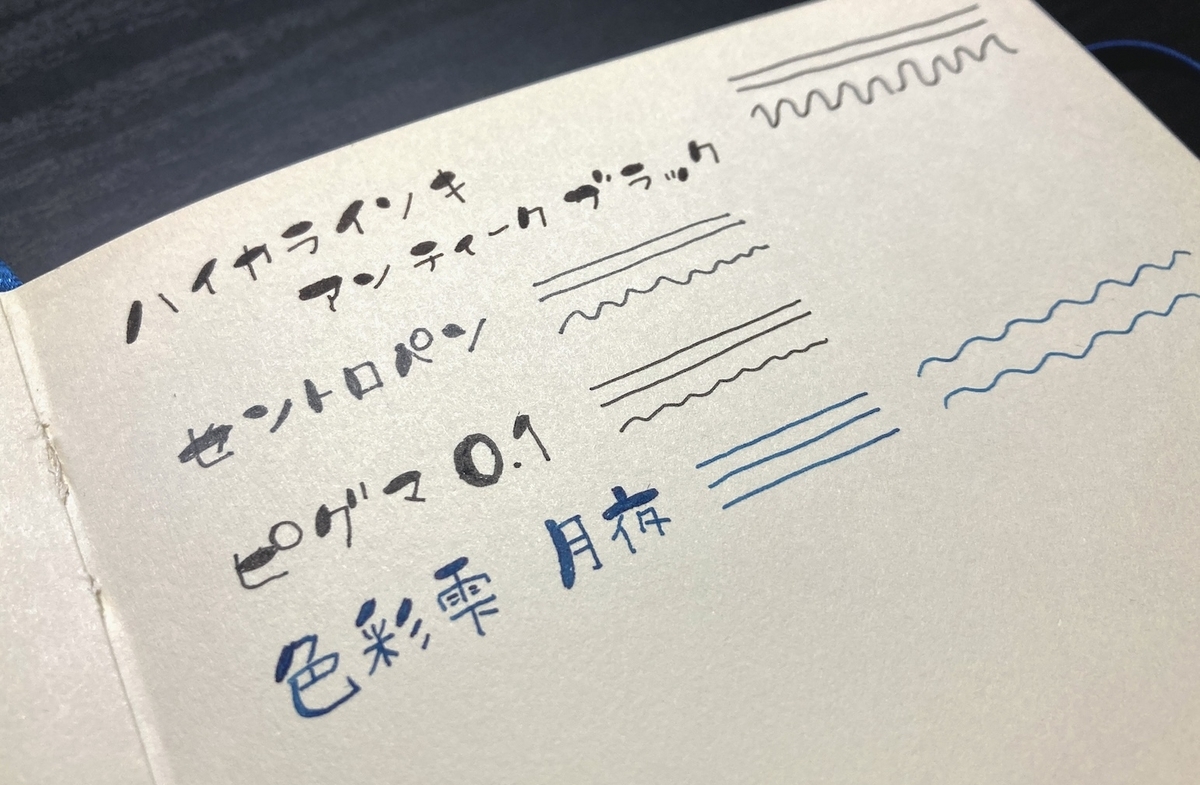 ハイカラインキ
アンティークブラック
セントロペン
ピグマ 0.1
色彩雫 月夜